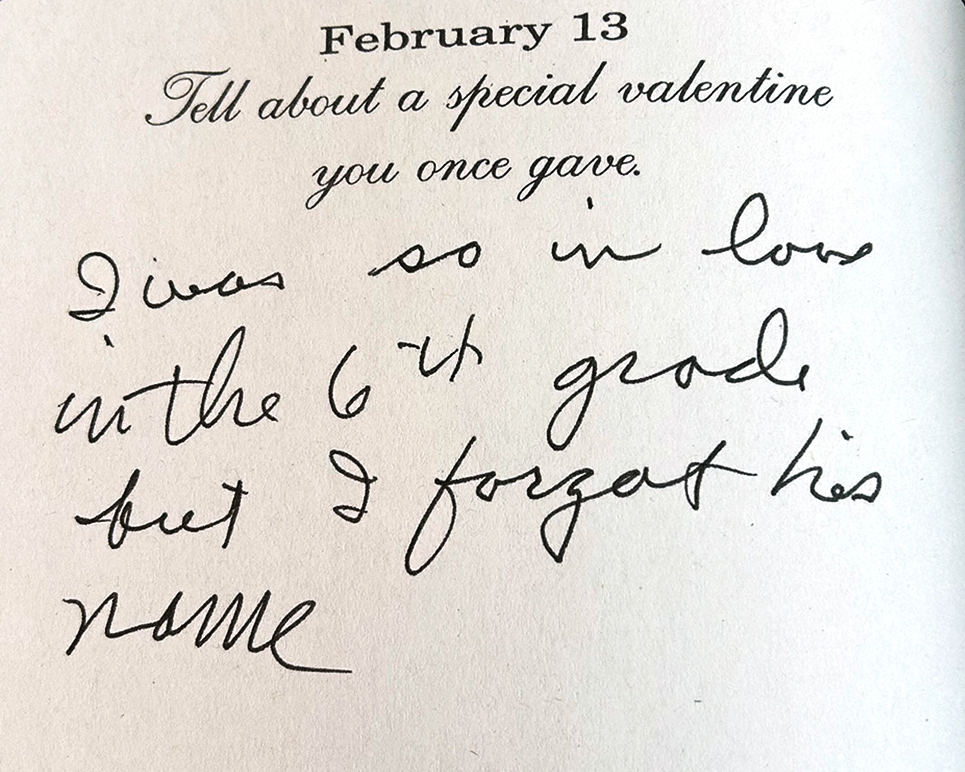 February 13
Tell about a special valentine
you once gave.
I was so in love
in the 6th grade
but I forgot his
name